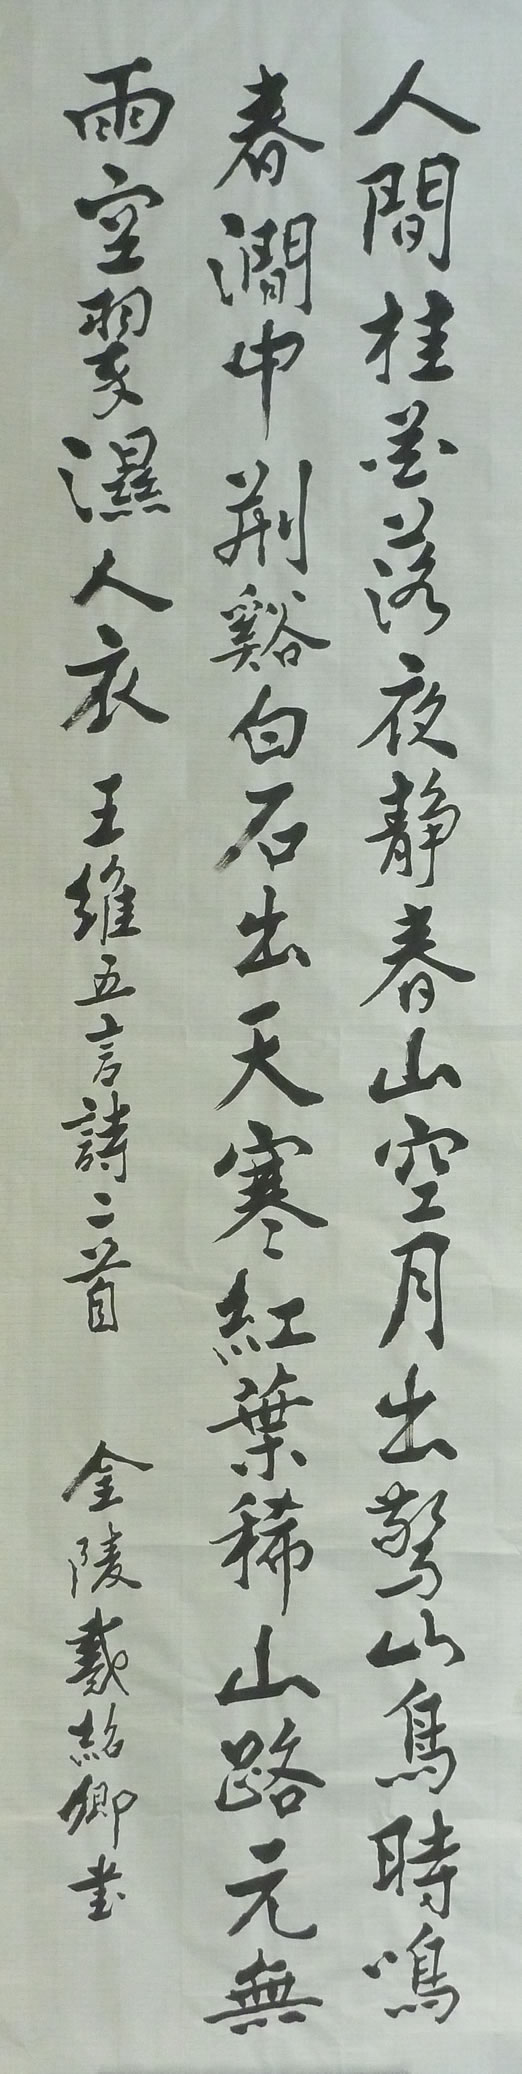 人間桂花落夜静春山空月出驚山鳥時鳴
春澗中荆谿白石出天寒紅葉稀山路元無
雨空翠濕人衣 王維五言詩二首 金陵戴紹卿書